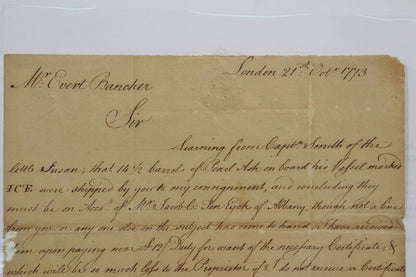 London 21.st Octr. 1773
Mr. Evert Bancker
Sir
Learning from Captn. Smith of the
little Susan; that 14 1/2 barrels of Pearl Ash on board his Vessel marked
ICE were shipped by you to my consignment, and concluding they
must be on Acct. of Mr. Jacob C: Ten Eyck of Albany, though not a line
from you or any one else on the subject has come to hand, I have received
them upon paying near £12/ Duty for want of the necessary Certificate, &
which will be so much loss to the Proprietor if I do not receive a Certificate